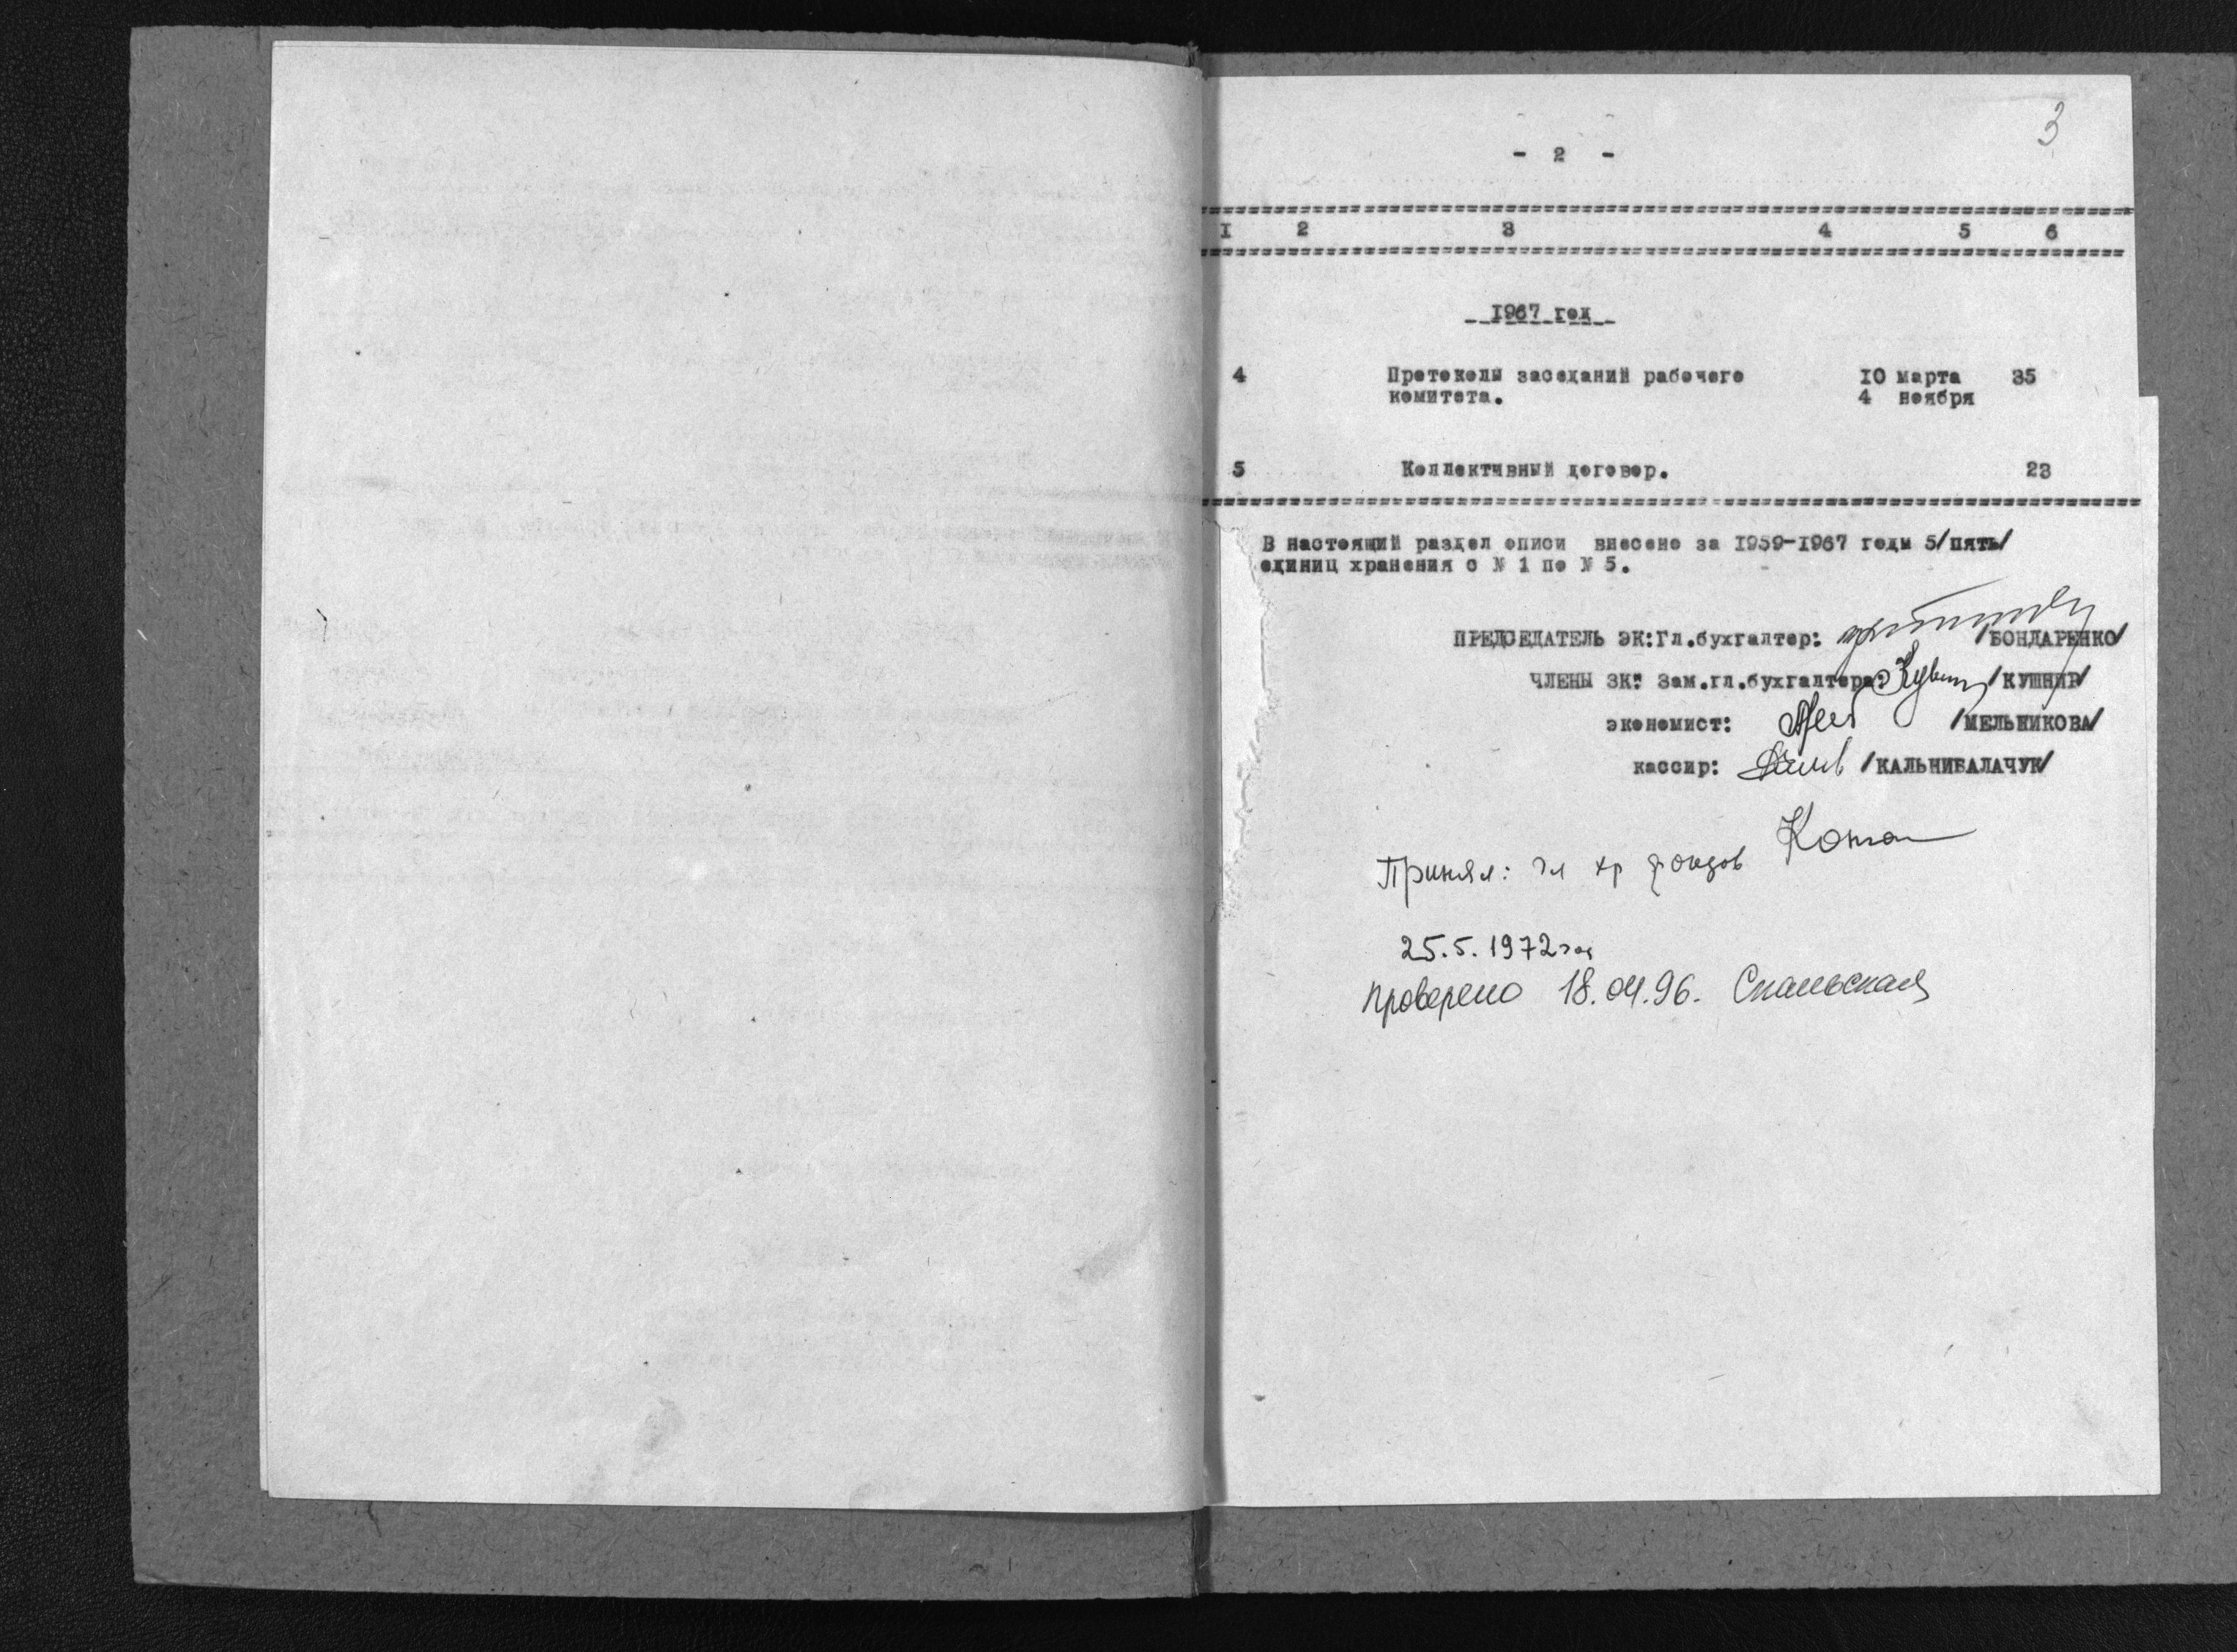 3
- 2 -
I 2 3 4 5 6
1967 год
4 Протоколы заседаний рабочего 10 марта 35
комитета. 4 ноября
5 Коллективный договор. 23
В настоящий раздел описи внесено за 1959-1967 годы 5/пять/
единиц хранения с № 1 по № 5.
ПРЕДСЕДАТЕЛЬ ЭК:Гл.бухгалтер: /БОНДАРЕНКО/
ЧЛЕНЫ ЭК: Зам.гл.бухгалтера: /КУШНИР/
экономист: /МЕЛЬНИКОВА/
кассир: /КАЛЬНИБАЛАЧУК/
Принял: гл хр фондов
25.5.1972 год
Проверено 18.04.96.